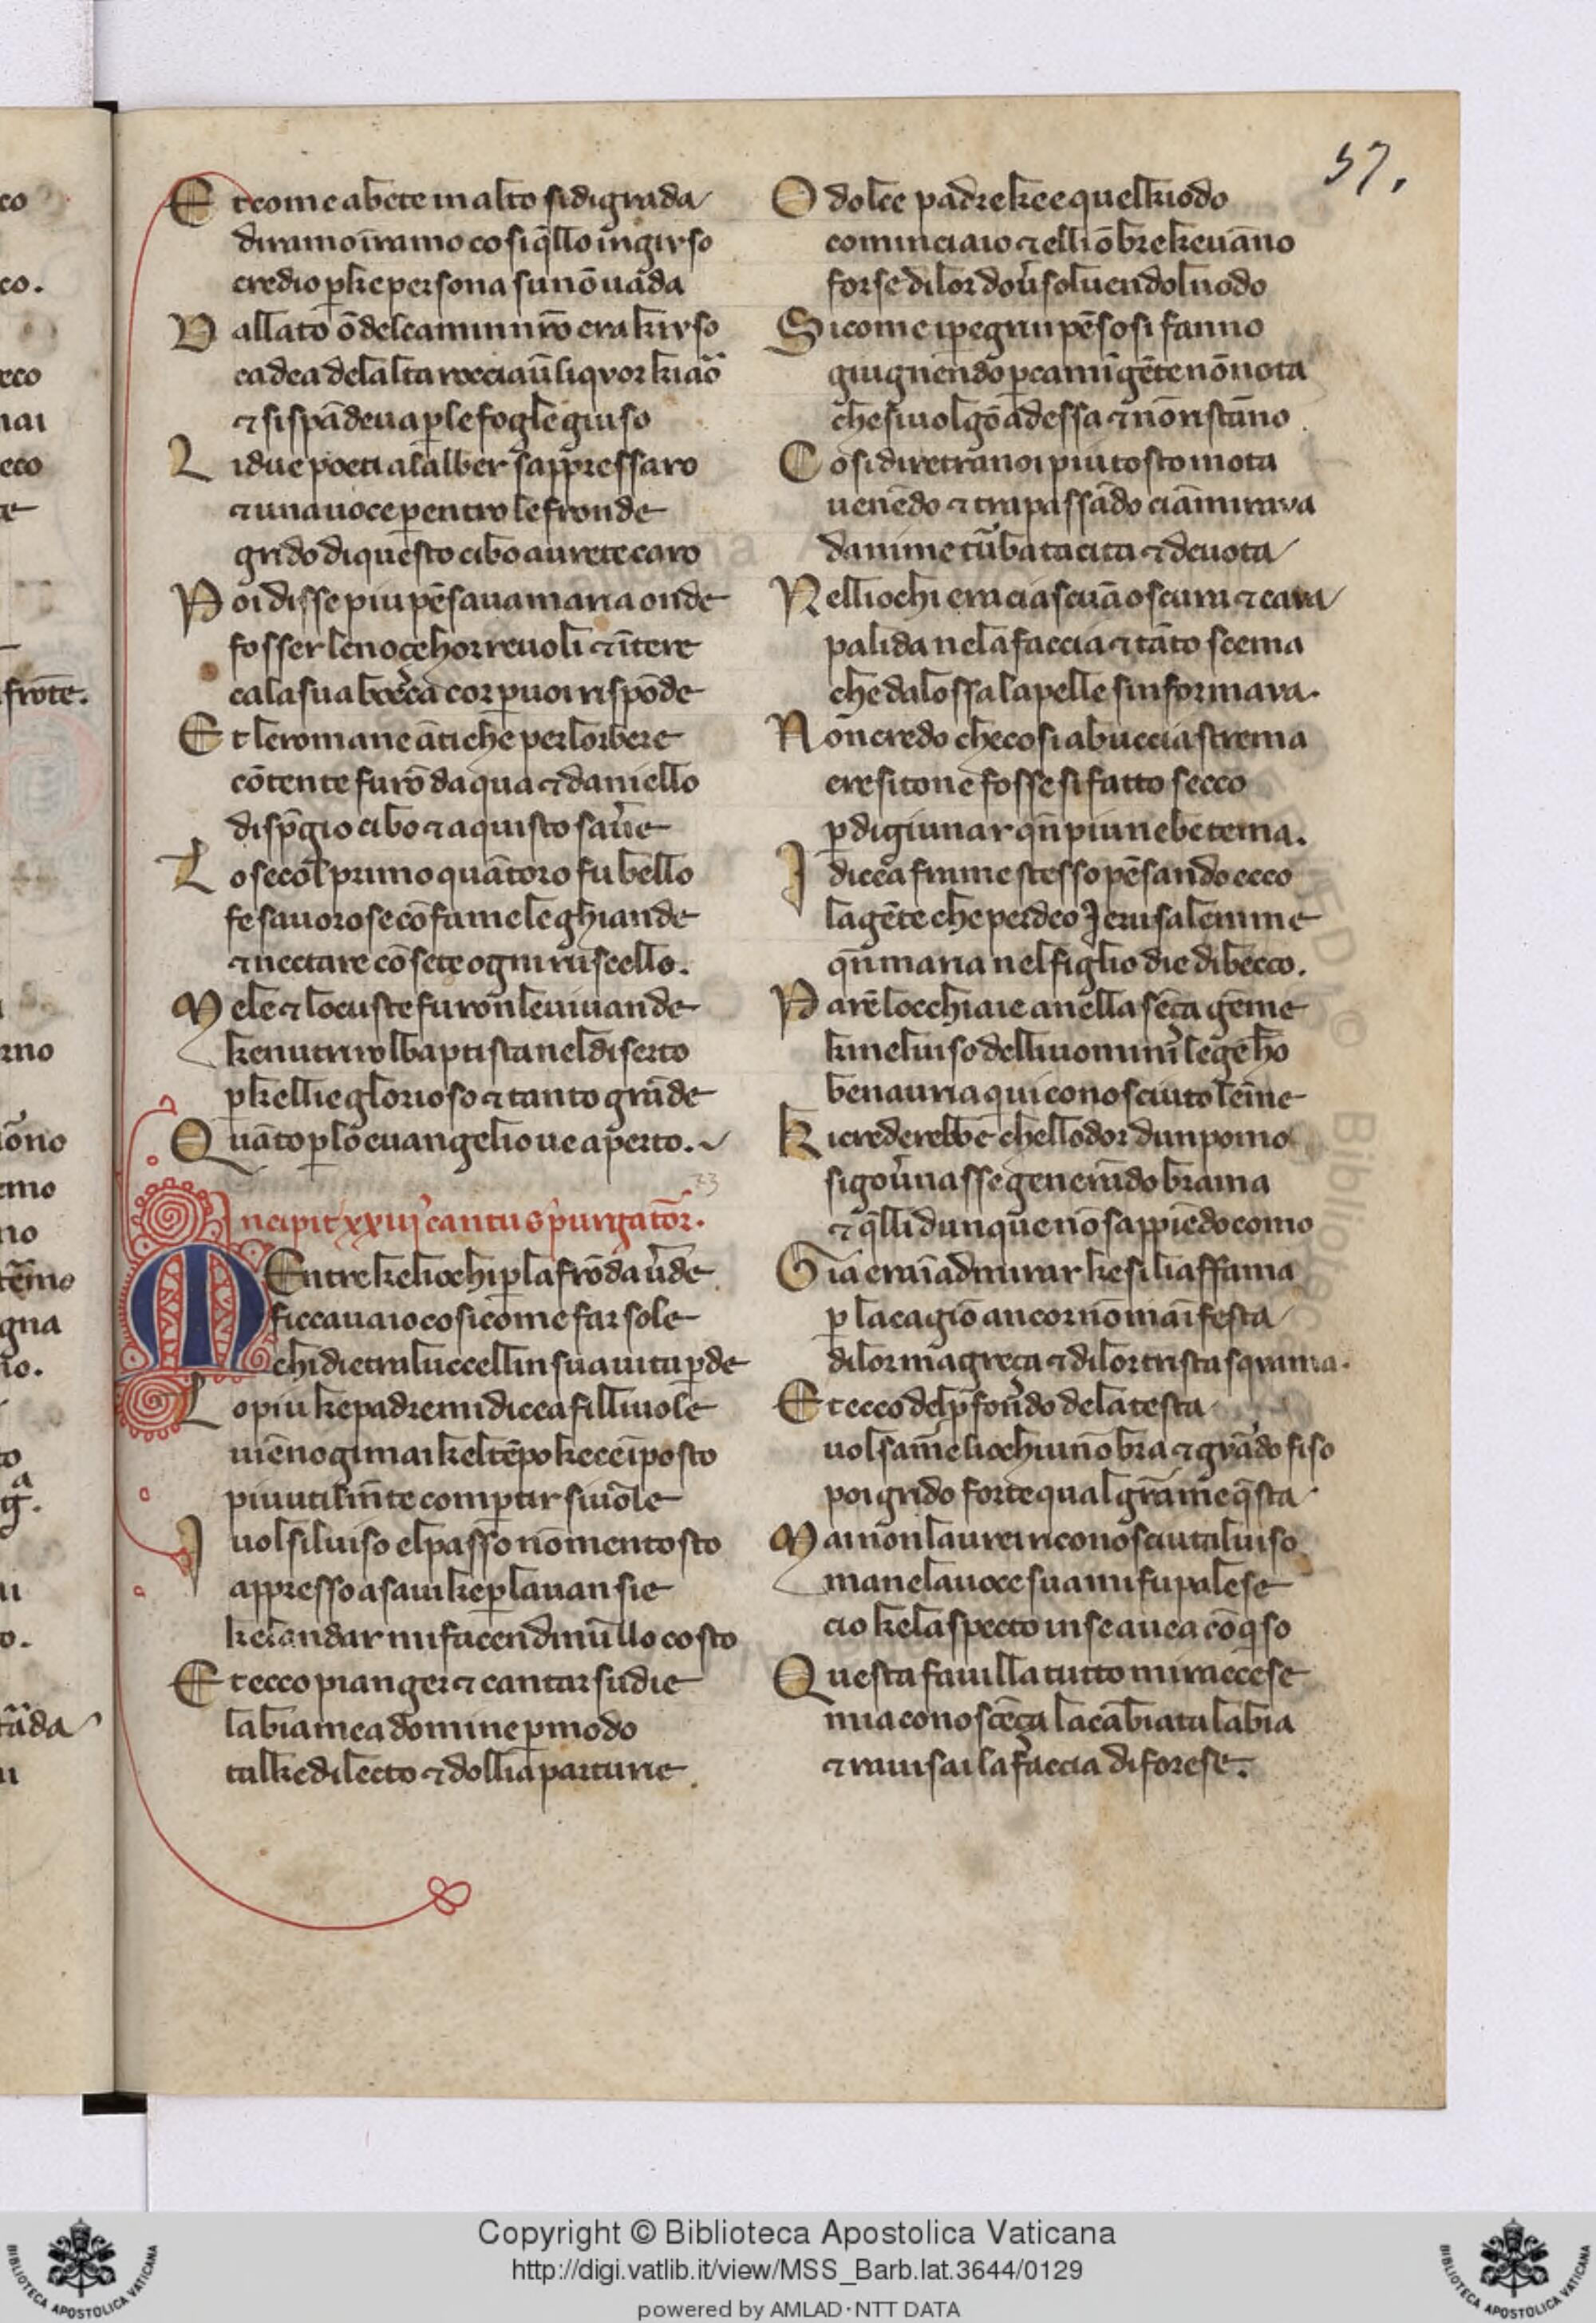 57.
Et come abete in alto si digrada
di ramo ĩ ramo cosi q̃llo in giuso
credio p̱ke persona su nō uada
Dallato ōdel camin nr̃o era kiuso
cadea delalta roccia ũ liquor kiaro
⁊ si spādeua p̱ le fogle giuso
Li due poeti alalber sappressaro
⁊ una uoce p̱entro le fronde
grido di questo cibo aurete caro
Poi disse piu pēsaua maria onde
fosser le noçe horreuoli ⁊ ītere
cala sua bocca cor p̱ uoi rispōde
Et le romane ātiche per lor bere
cōtente furō daqua ⁊ daniello
disp̄gio cibo ⁊ aquisto sau̾e
Lo secol primo quātoro fu bello
fe sauorose cō fame le ghiande
⁊ nectare cō sete ogni ruscello.
Mele ⁊ locuste furōn le uiuande
ke nutriro lbaptista nel diserto
p̱kellie glorioso ⁊ tanto grāde
Quāto p̱ lo euangelio ue aperto.
23
Incipit xxiij cantus purgator̃.
Mentre keliochi p̱ la frōda u̾de
ficcaua io cosi come far sole
chi dietra luccellin sua uita p̱de
Lo piu ke padre mi dicea filliuole
uiēno gimai kel tēpo kece īposto
piu utilm̄te comp̱tir si uōle
I uolsi luiso el passo nōmen tosto
appresso a saui ke p̱lauan sie
ke landar mi facen di nullo costo
Et ecco pianger ⁊ cantar sudie
labia mea domine p̱ modo
tal ke dilecto ⁊ dollia parturie
O dolce padre ke e quel kiodo
cominciaio ⁊ elli ōbre ke uāno
forse di lor dou̾ soluendo lnodo
Si come i peregrin pēsosi fanno
giugnendo p̱ camī gēte nō nota
che si uolgō adessa ⁊ nō ristāno
Cosi diretra noi piu tosto mota
uenēdo ⁊ trapassādo ciāmiraua
danime tūba tacita ⁊ deuota
Nelliochi era ciascūa oscura ⁊ caua
palida nela faccia ⁊ tāto scema
che da lossa la pelle sinformaua.
Nōn credo che cosi a buccia strema
eresitone fosse si fatto secco
p̱ digiunar qn̄ piu nebe tema.
I dicea fra me stesso pēsando ecco
la gēte che perdeo Jerusalemme
qn̄ maria nel figlio die di becco.
Parē locchiaie anella sēça gēme
ki nel uiso delli uomin̄ lege ho
ben auria qui conosciuto lēme
Ki crederebbe che llodor dun pomo
si gou̾nasse generādo brama
⁊ q̃lli dunque nō sappiēdo como
Gia era ī admirar ke si li affama
p̱ la cagiō ancor nō maīfesta
di lor magreça ⁊ di lor trista squama.
Et ecco del p̱fondo dela testa
uolsam̄e liochi unōbra ⁊ guādo fiso
poi grido forte qual grā m̄e q̄sta
Mai non laurei riconosciutal uiso
ma nela uoce sua mi fu palese
cio ke laspecto in se auea cōq̱so
Questa fauilla tutto mi raccese
mia conoscēça la cābiata labia
⁊ rauisai la faccia di forese.
Copyright © Biblioteca Apostolica Vaticana
http://digi.vatlib.it/view/MSS_Barb.lat.3644/0129
powered by AMLAD·NTT DATA